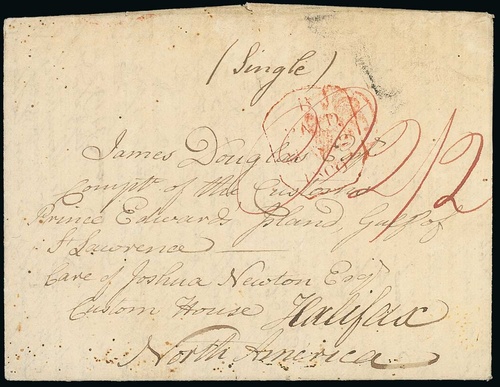 (Single)
2/2
James Douglas Esqr
Compt of the Customs
Prince Edwards Island, Gulf of
St Lawrence
Care of Joshua Newton Esqr
Custom House Halifax
North America